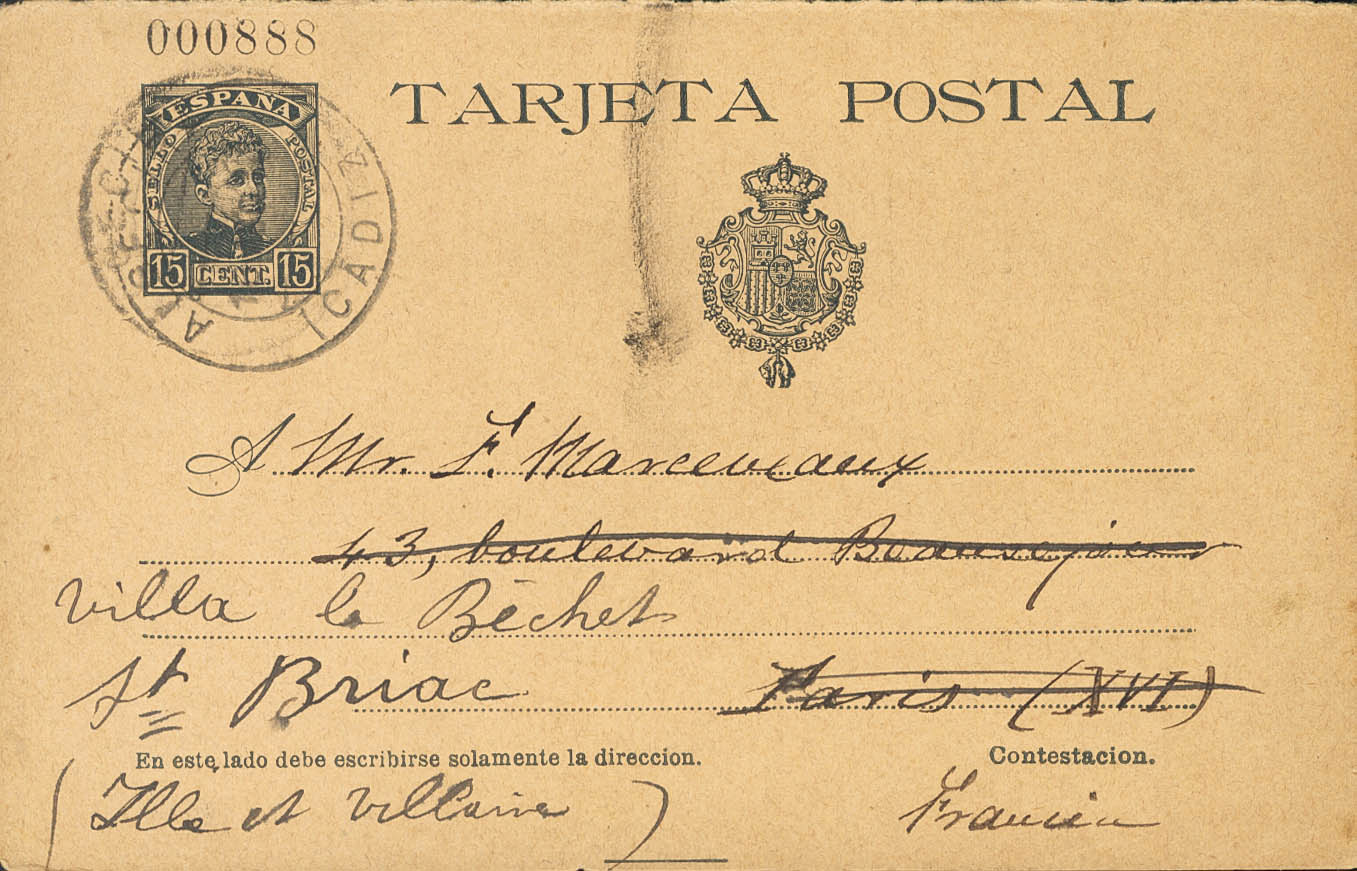 000888
TARJETA POSTAL
ESPAÑA
SELLO POSTAL
15 CENT. 15
(CADIZ
A Mr. F. Marceveaux
43, boulevard Beausejour
Villa le Béchet
St Briac
Paris (XVI)
En este lado debe escribirse solamente la direccion.
Contestacion.
(Ille et Villaine)